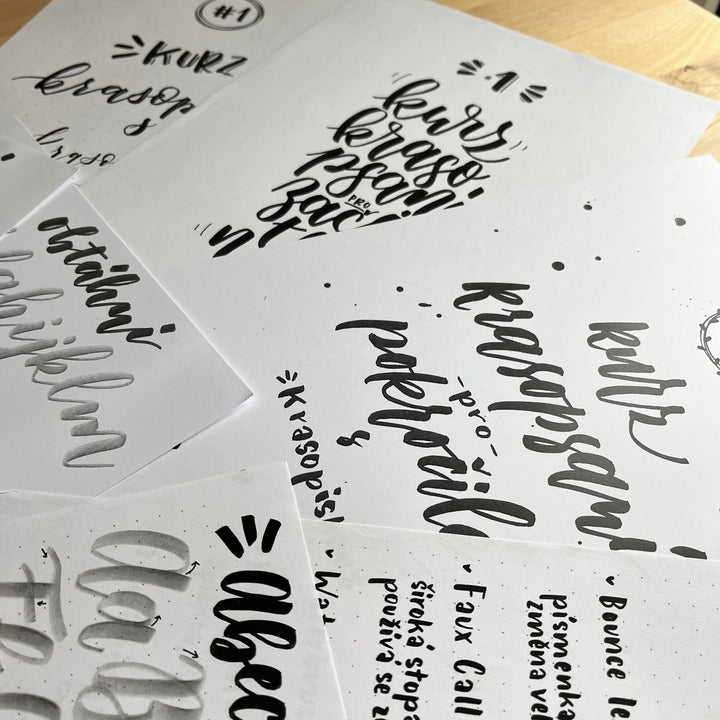 #1
KURZ
krasop
s
·1
kurz
kraso
psaní
PRO
zač
kurz
krasopsaní
- pro -
pokročil
Krasopis
obtáhni
abec
Aa
Bounce le
písmenka
změna vel
Faux Call
široká stopa
používá se z